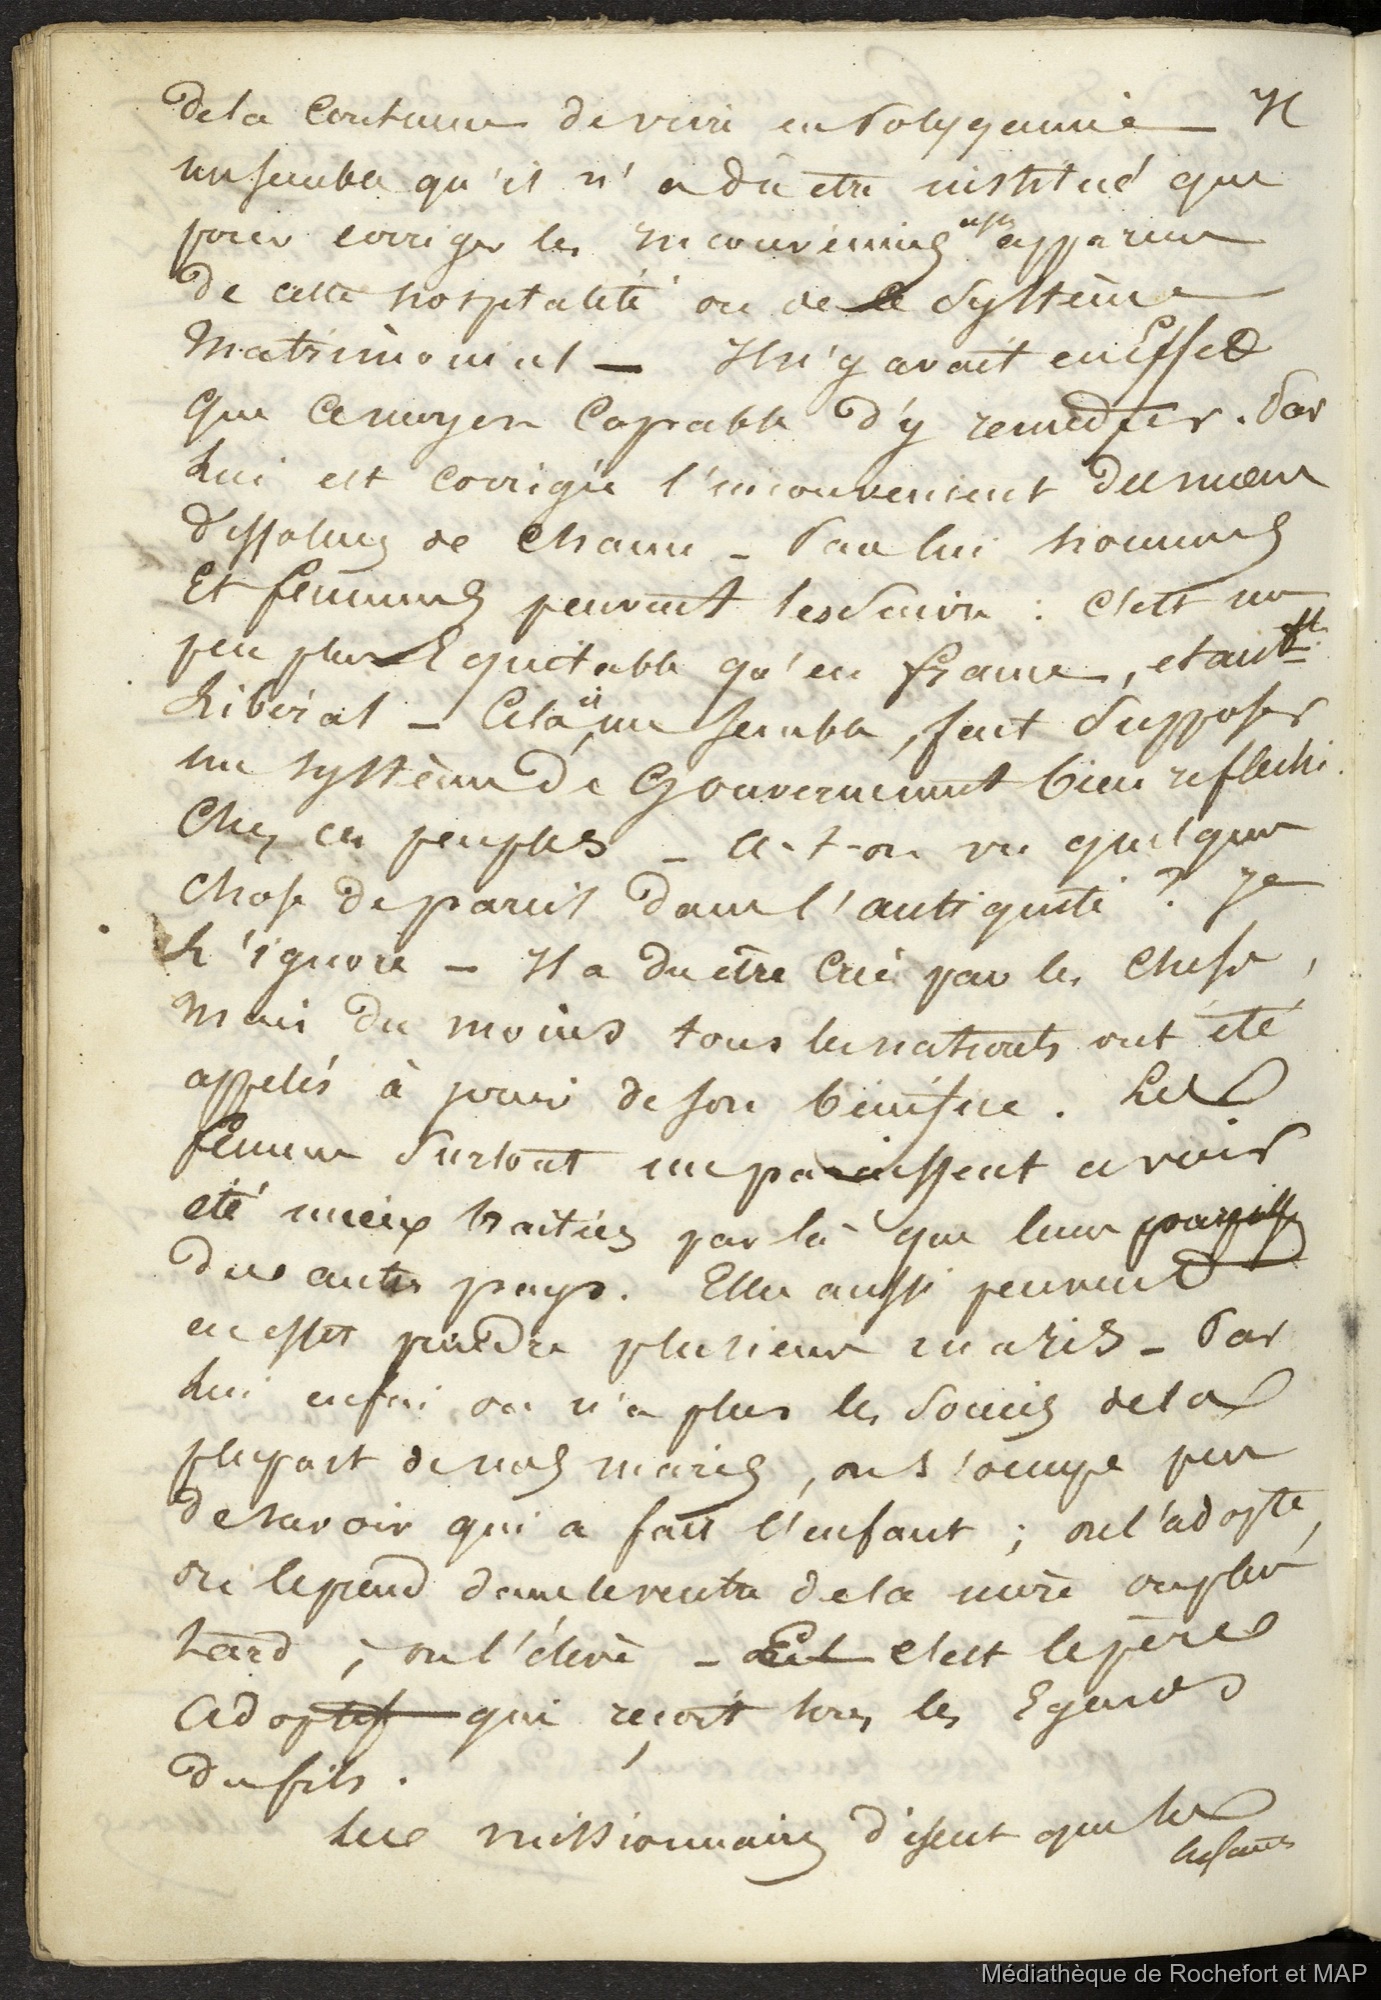 de la Coutume de vivre en Polygamie — Il
me semble qu'il n'a dû etre institué que
pour corriger les inconvéniens apparens
de cette hospitalité ou de ce Système
Matrimonial — Il n'y avait en Effet
Que Ce moyen Capable d'y remedier. Par
Lui est corrigée l'inconvenient des mœurs
dissolues de Chacun — Par lui hommes
Et femmes peuvent les Suivre : C'est un
peu plus Equitable qu'en france, et aussi
Libéral — Cela, il me semble, fait Supposer
un système de Gouvernement bien reflechi
Chez ces peuples — a-t-on vu quelque
Chose de pareil dans l'antiquité ? Je
L'ignore — Il a du être Créé par les Chefs,
Mais du moins tous les nationts ont été
appelés à jouir de son bénéfice. Les
femmes Surtout me paraissent avoir
eté mieux traitées par là que leurs
des autres pays. Elles aussi peuvent
en effet prendre plusieurs maris — Par
Lui enfin on n'a plus les Soucis de la
plupart de nos maris, on s'occupe peu
de savoir qui a fait l'enfant ; on l'adopte,
on le prend dans le ventre de la mère ou plus
tard ; on l'élève — C'est le père
Adoptif qui reçoit tous les Egards
du fils.
Les missionnaires disent que les
enfants
Médiathèque de Rochefort et MAP